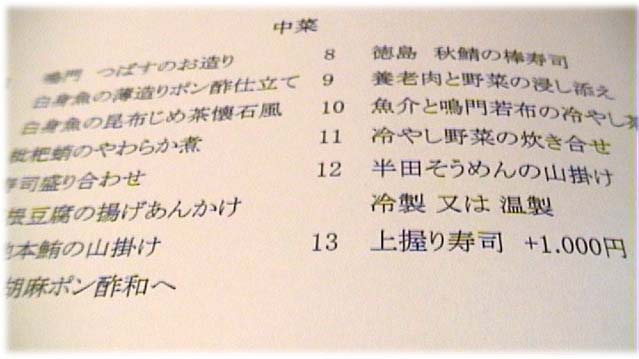 中菜
鳴門 つばすのお造り
白身魚の薄造りポン酢仕立て
白身魚の昆布じめ茶懐石風
枇杷蛸のやわらか煮
寿司盛り合わせ
豆腐の揚げあんかけ
本鮪の山掛け
胡麻ポン酢和へ
8 徳島 秋鯖の棒寿司
9 養老肉と野菜の浸し添え
10 魚介と鳴門若布の冷やし
11 冷やし野菜の炊き合せ
12 半田そうめんの山掛け
冷製 又は 温製
13 上握り寿司 +1.000円